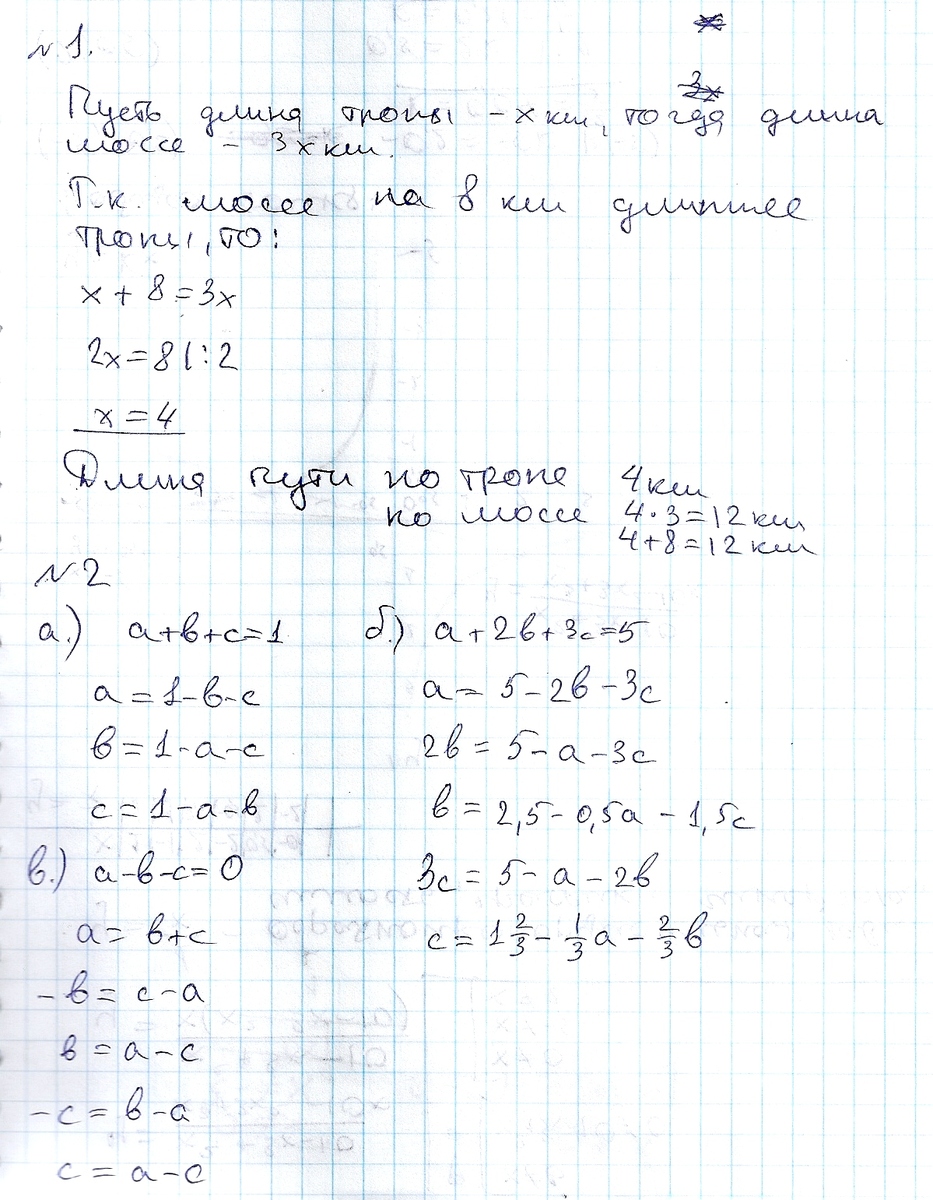 №1.
Пусть длина тропы – x км, тогда длина
шоссе – 3x км.
Т.к. шоссе на 8 км длиннее
тропы, то:
x + 8 = 3x
2x = 8 | : 2
x = 4
Длина пути по тропе 4 км
по шоссе 4·3=12 км
4+8=12 км
№2
а.) a+b+c=1
a=1-b-c
b=1-a-c
c=1-a-b
б.) a+2b+3c=5
a=5-2b-3c
2b=5-a-3c
b=2,5-0,5a-1,5c
3c=5-a-2b
c=1 2/3 - 1/3 a - 2/3 b
в.) a-b-c=0
a=b+c
-b=c-a
b=a-c
-c=b-a
c=a-c